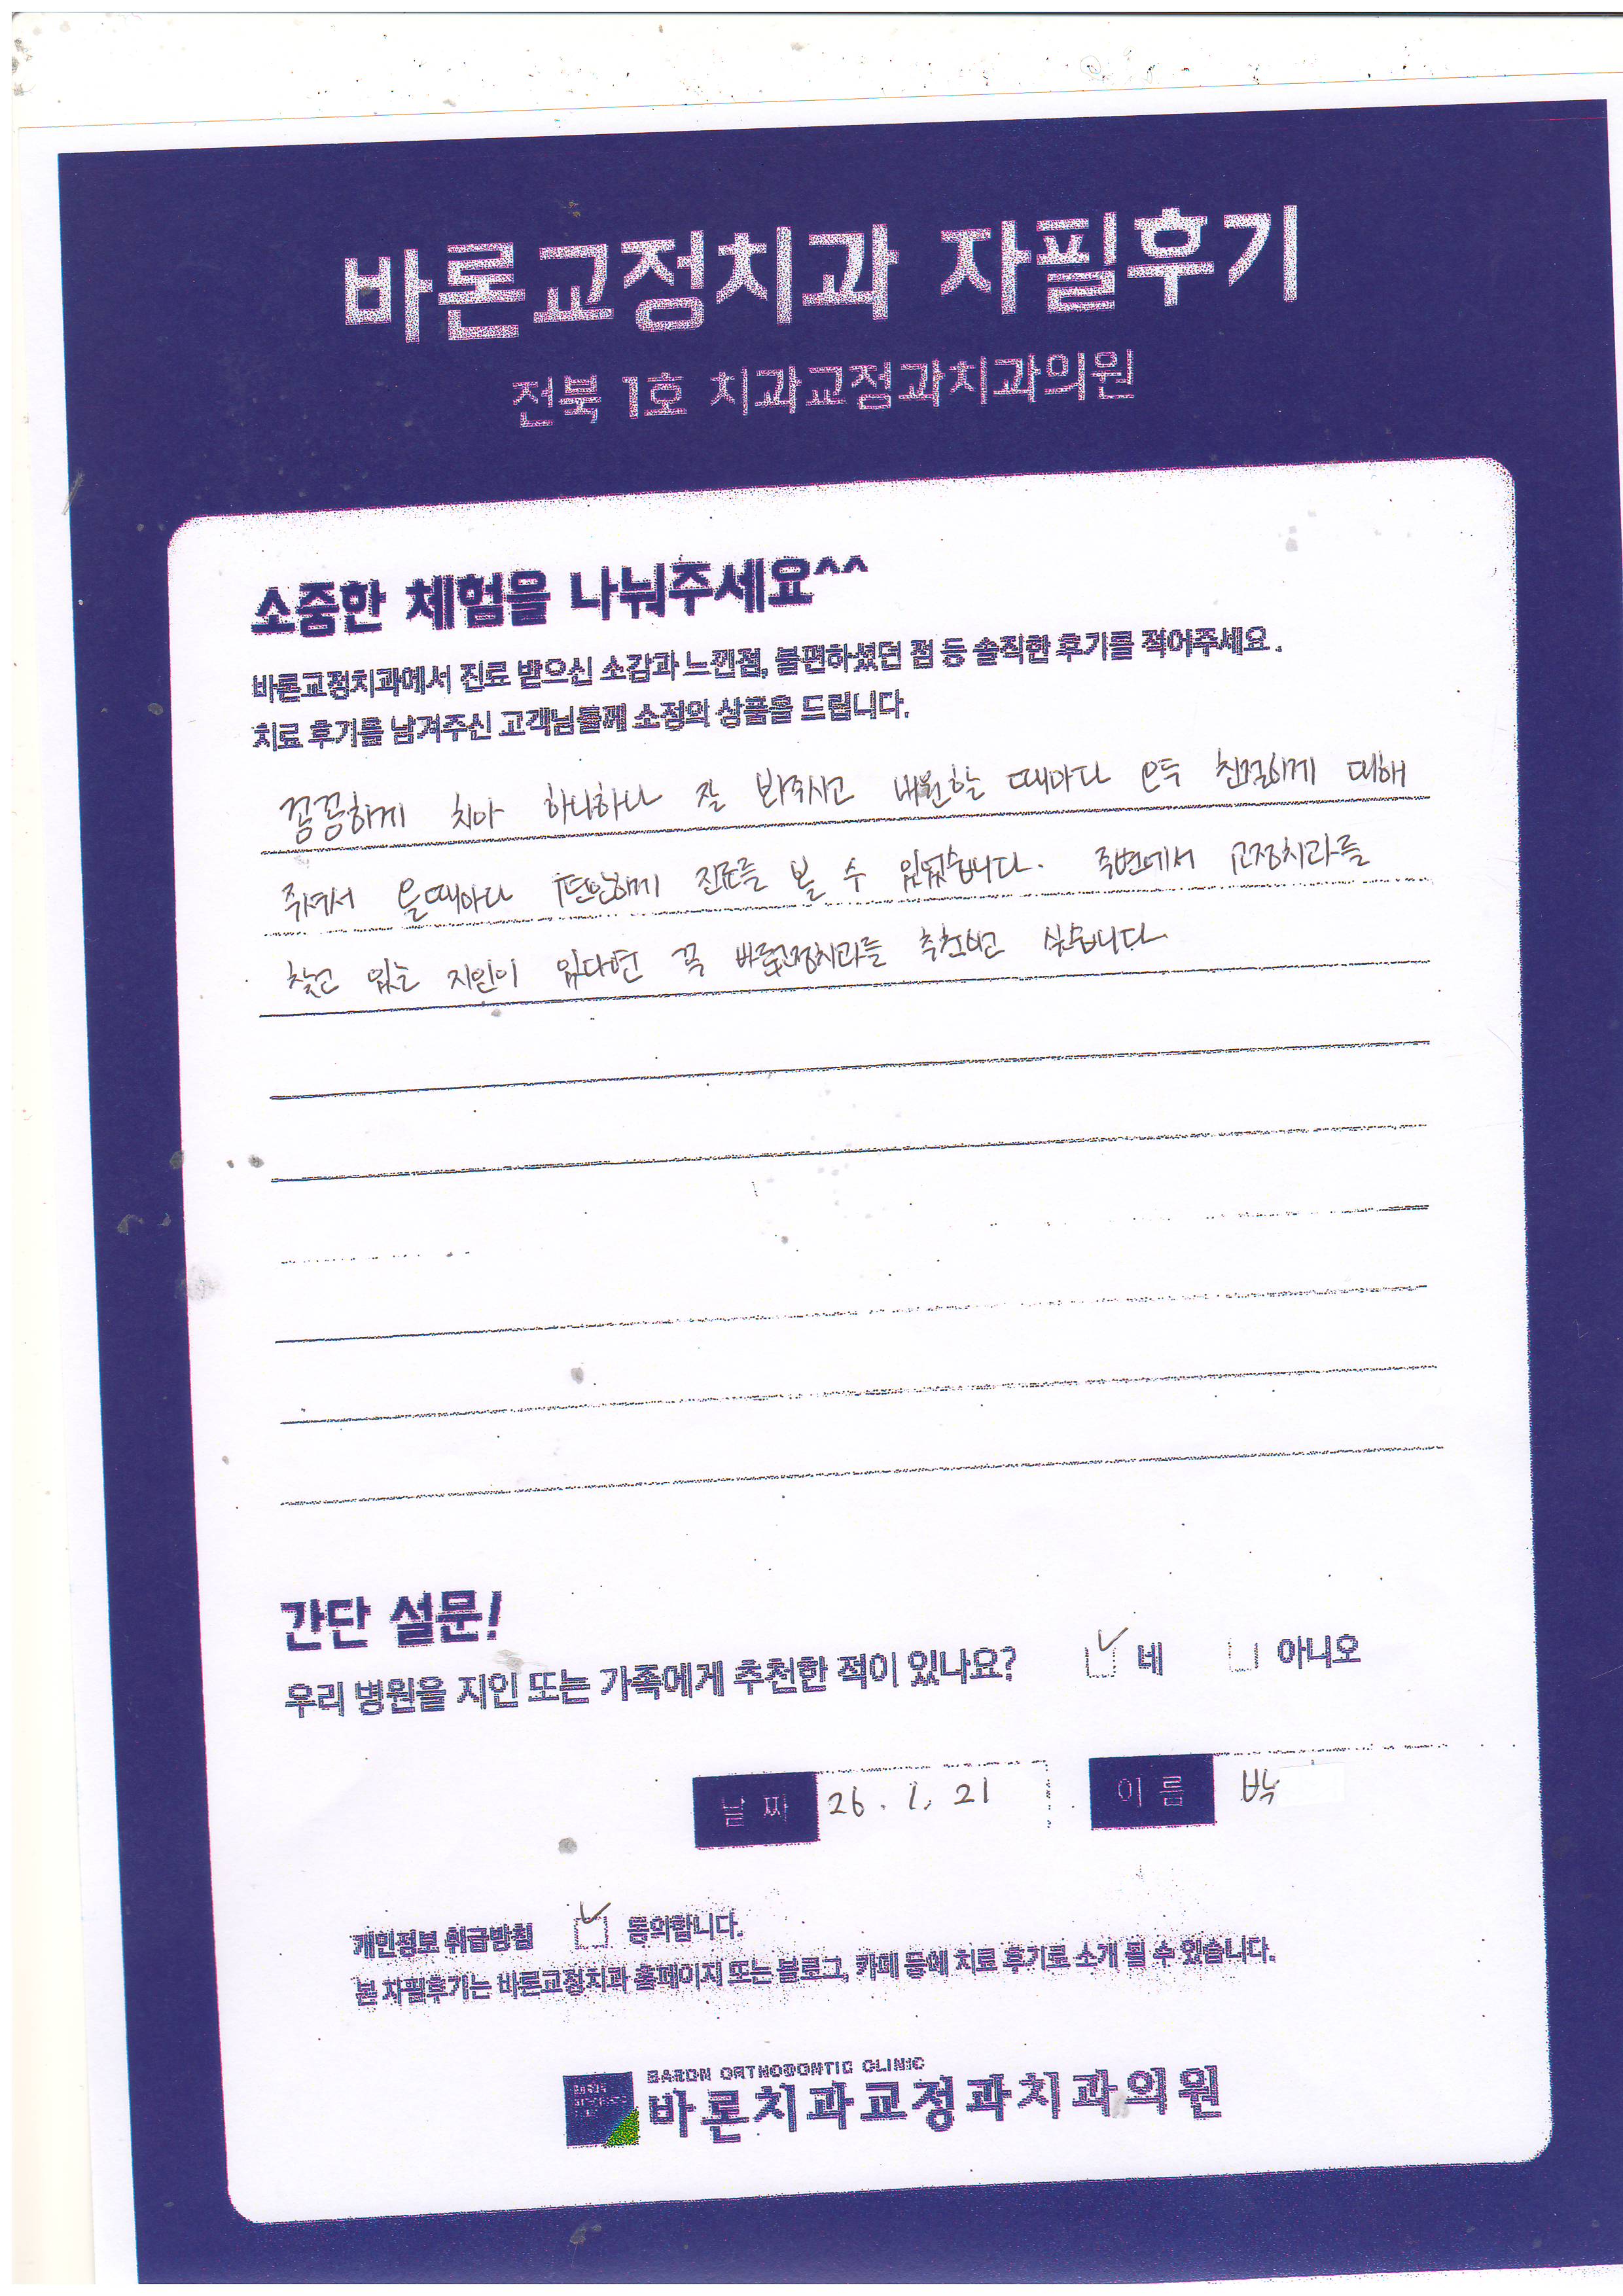 바론교정치과 자필후기
전북 1호 치과교정과치과의원
소중한 체험을 나눠주세요^^
바론교정치과에서 진료 받으신 소감과 느낀점, 불편하셨던 점 등 솔직한 후기를 적어주세요.
치료 후기를 남겨주신 고객님들께 소정의 상품을 드립니다.
꼼꼼하게 치아 하나하나 잘 봐주시고 내원할 때마다 모두 친절하게 대해
주셔서 올때마다 편안하게 진료를 볼 수 있었습니다. 주변에서 교정치과를
찾고 있는 지인이 있다면 꼭 바론교정치과를 추천하고 싶습니다.
간단 설문!
우리 병원을 지인 또는 가족에게 추천한 적이 있나요? 네 아니오
날 짜 26. 1. 21 이 름 박
개인정보 취급방침 동의합니다.
본 자필후기는 바론교정치과 홈페이지 또는 블로그, 카페 등에 치료 후기로 소개 될 수 있습니다.
BARON ORTHODONTIC CLINIC
바론치과교정과치과의원